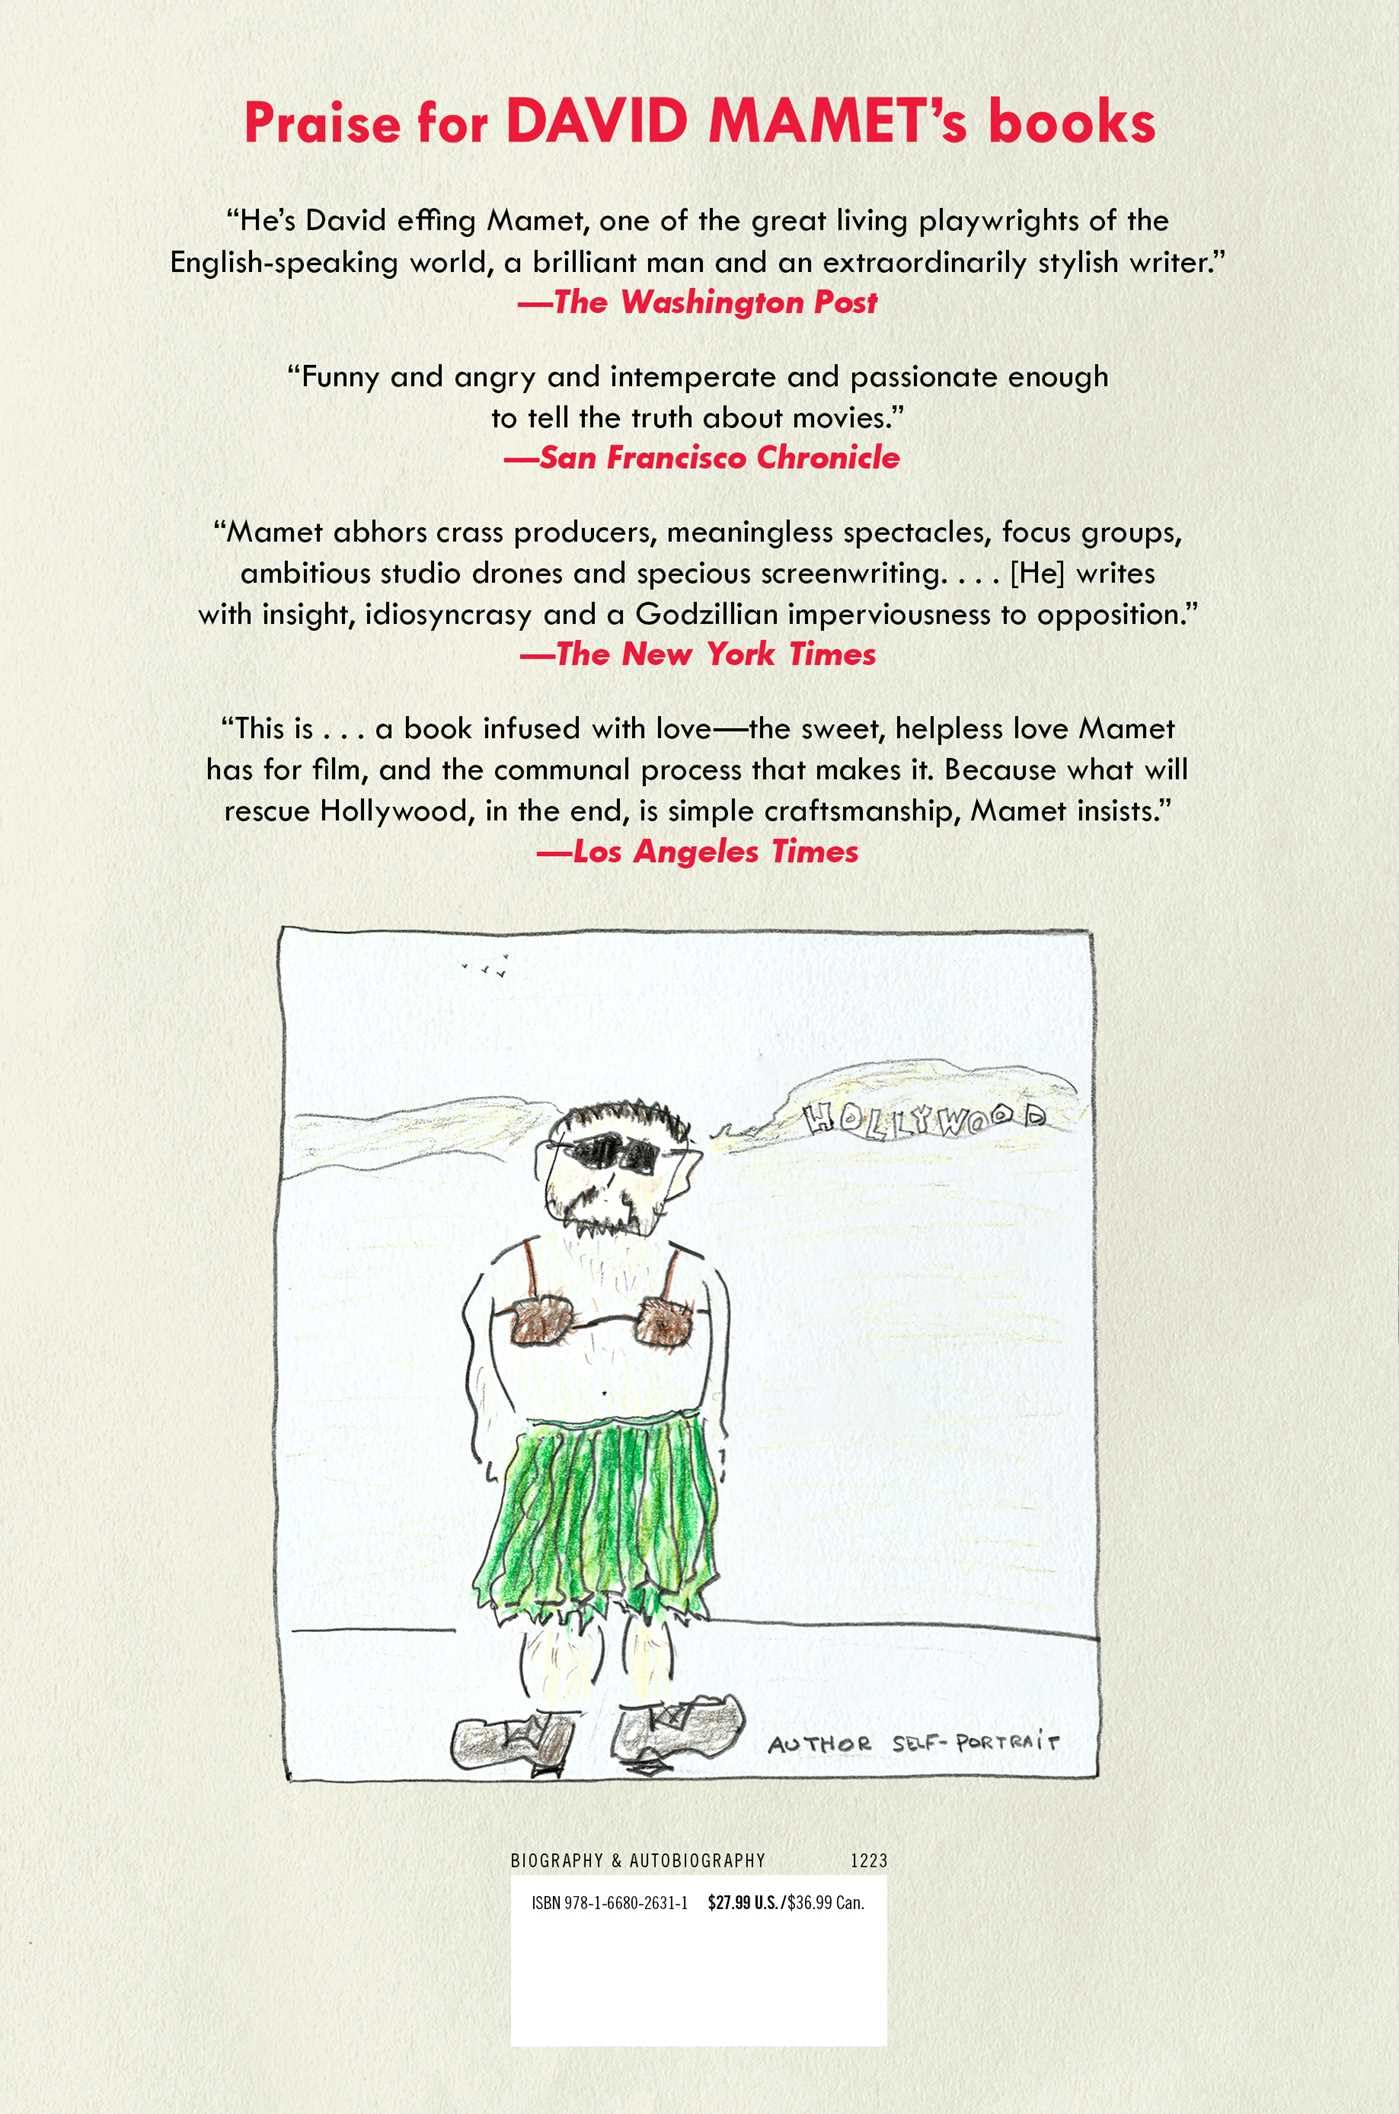 Praise for DAVID MAMET’s books
“He’s David effing Mamet, one of the great living playwrights of the
English-speaking world, a brilliant man and an extraordinarily stylish writer.”
—The Washington Post
“Funny and angry and intemperate and passionate enough
to tell the truth about movies.”
—San Francisco Chronicle
“Mamet abhors crass producers, meaningless spectacles, focus groups,
ambitious studio drones and specious screenwriting. . . . [He] writes
with insight, idiosyncrasy and a Godzillian imperviousness to opposition.”
—The New York Times
“This is . . . a book infused with love—the sweet, helpless love Mamet
has for film, and the communal process that makes it. Because what will
rescue Hollywood, in the end, is simple craftsmanship, Mamet insists.”
—Los Angeles Times
HOLLYWOOD
AUTHOR SELF-PORTRAiT
BIOGRAPHY & AUTOBIOGRAPHY 1223
ISBN 978-1-6680-2631-1 $27.99 U.S./$36.99 Can.